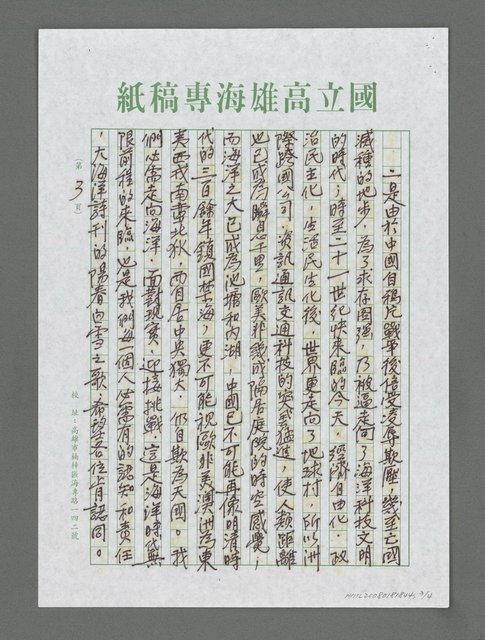 國立高雄海專稿紙
二是由於中國自鴉片戰爭後倍受凌辱欺壓，幾至亡國
滅種的地步，為了求存圖強，乃被逼走向了海洋科技文明
的時代；時至二十一世紀快來臨的今天，經濟自由化，政
治民主化，生活民生化後，世界更走向了地球村，所以洲
際跨國公司，資訊通訊交通科技的突飛猛進，使人類距離
也已成為瞬息千里，歐美非幾成隔居庭院的時空感覺；
而海洋之大已成為池塘和內湖，中國已不可能再像明清時
代的三百餘年鎖國禁海，更不可能視歐非美澳洲為東
夷西戎南蠻北狄，而自居中央獨大，仍自欺為天國。我
們必需走向海洋，面對現實，迎接挑戰，這是海洋時無
限前程的來臨，也是我們每一個人必需有的認知和責任
，大海洋詩刊的陽春白雪之歌，希望各位皆認同。
(第 3 頁)
校 址：高雄市楠梓區海專路一四二號